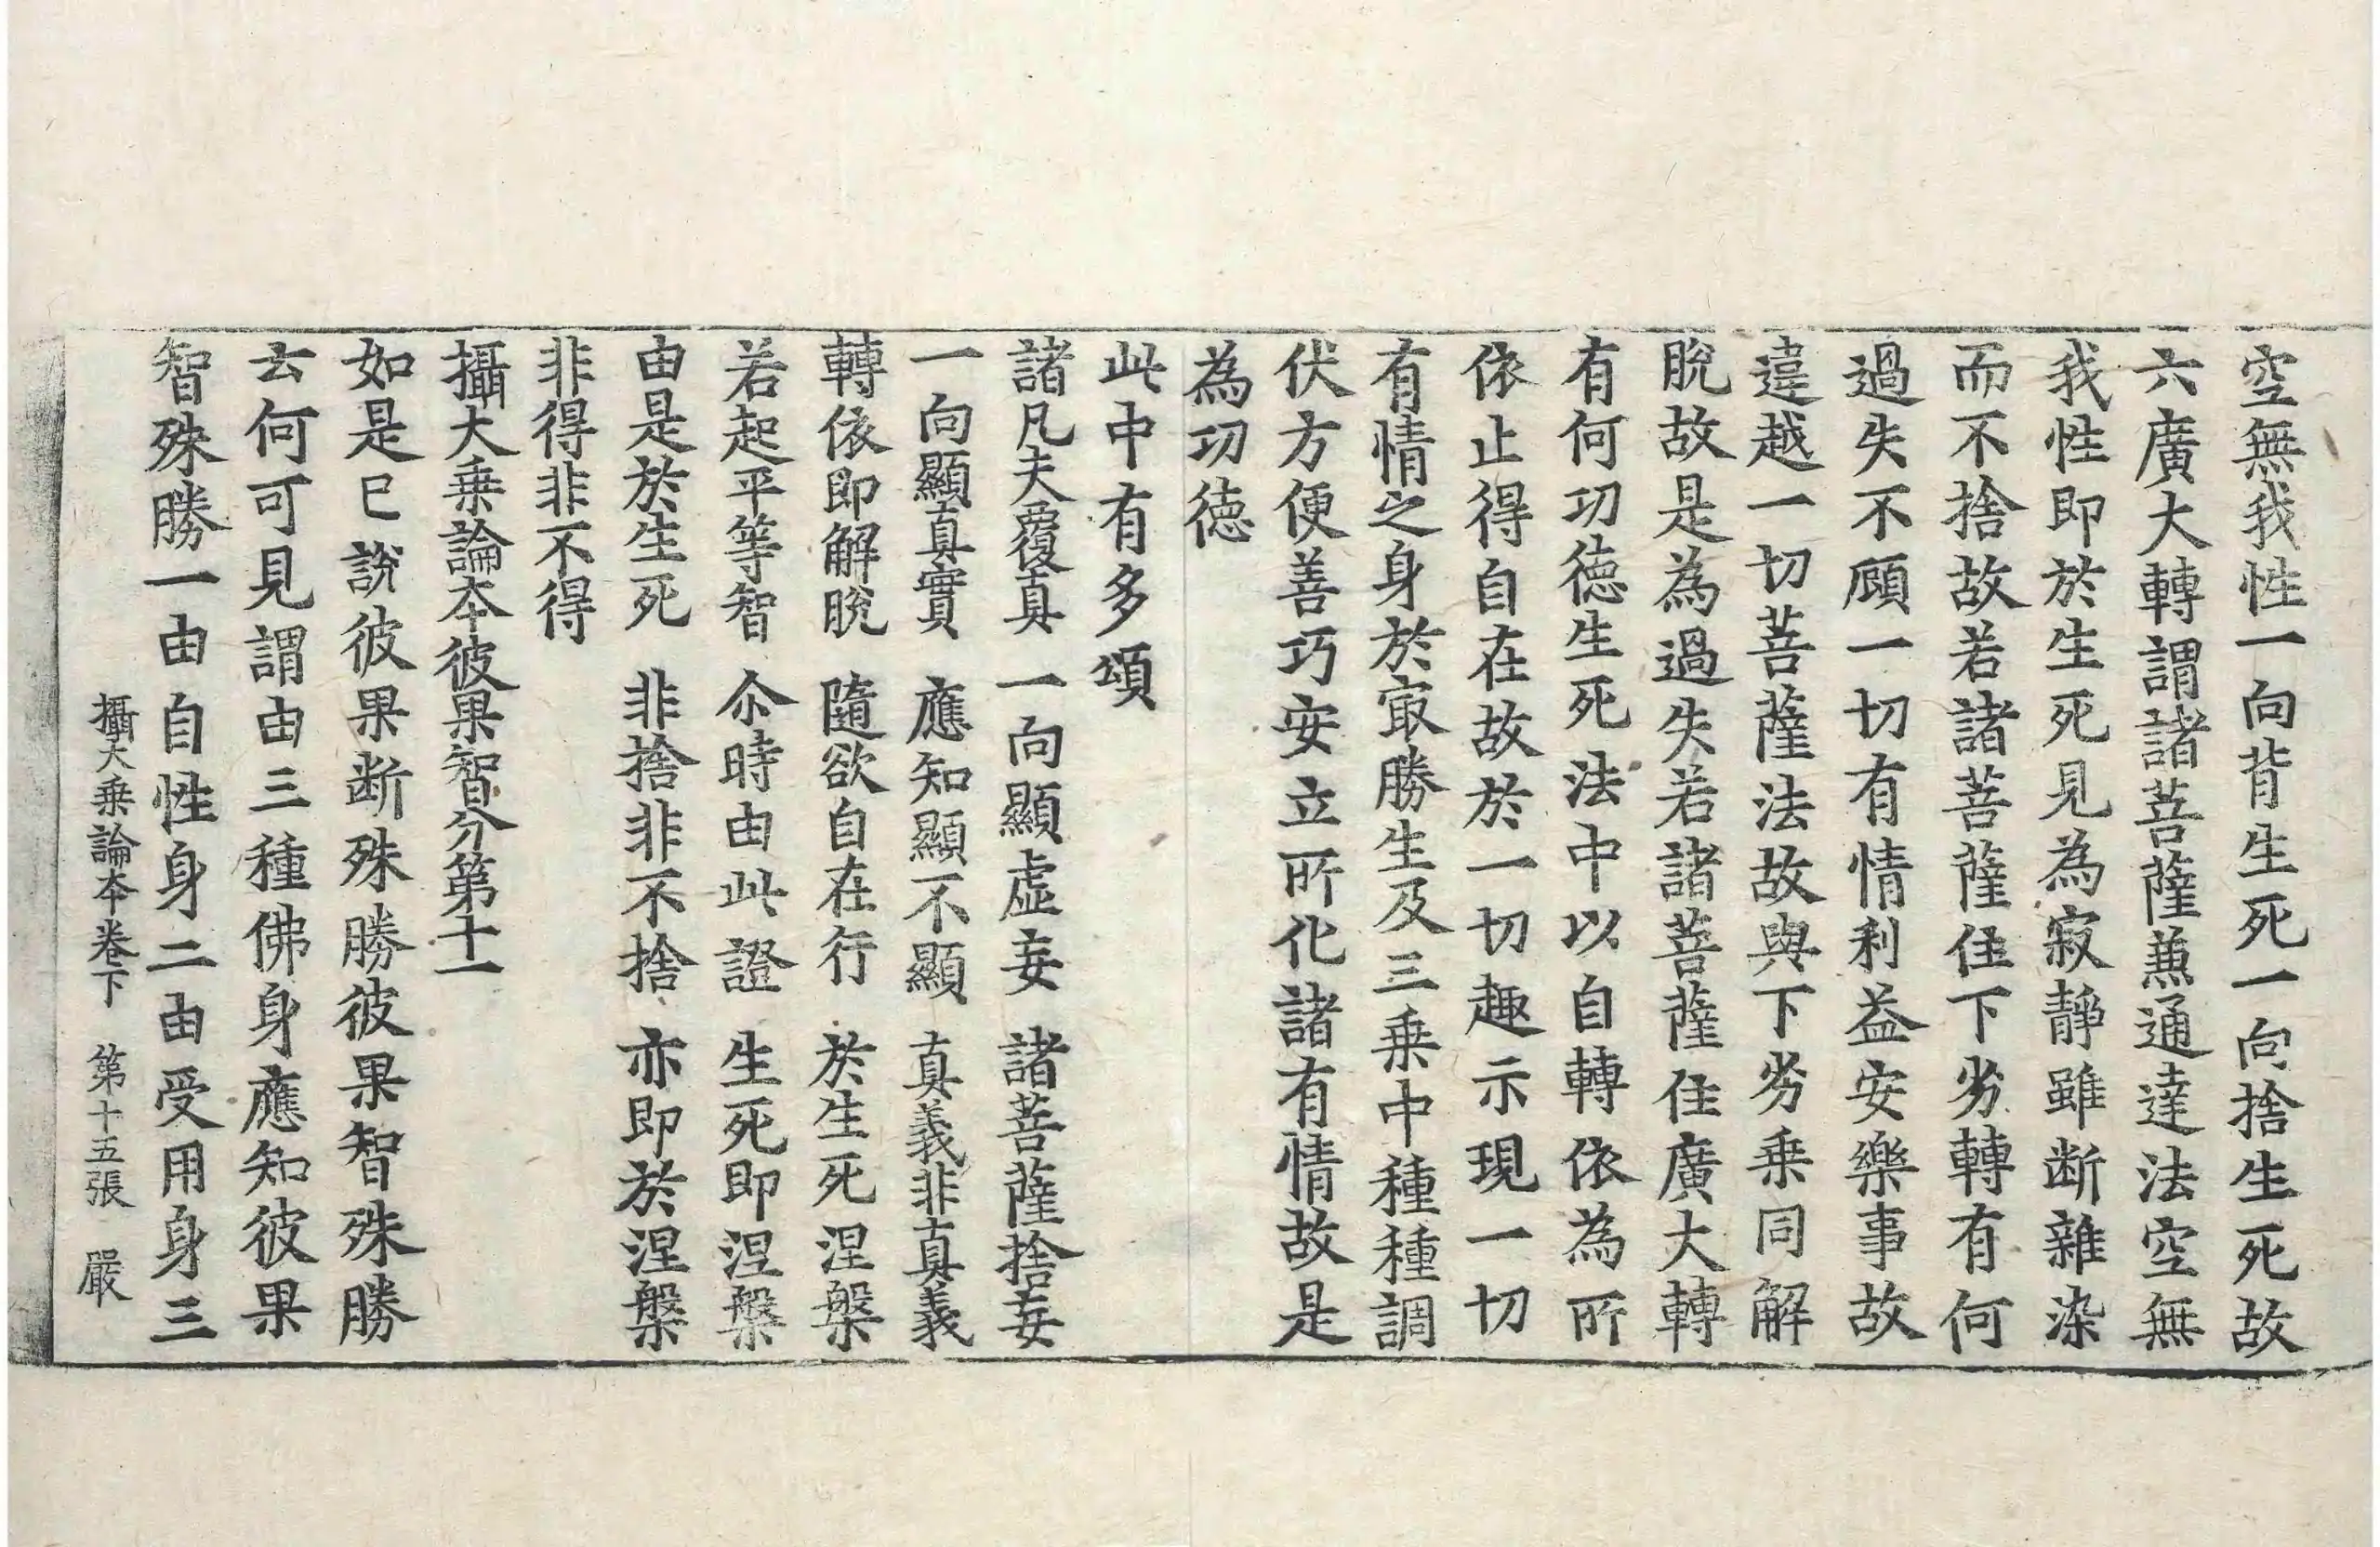 空無我性一向背生死一向捨生死故
六廣大轉謂諸菩薩兼通達法空無
我性即於生死見為寂靜雖断雜染
而不捨故若諸菩薩住下劣轉有何
過失不顧一切有情利益安樂事故
違越一切菩薩法故與下劣乗同解
脫故是為過失若諸菩薩住廣大轉
有何功德生死法中以自轉依為所
依止得自在故於一切趣示現一切
有情之身於㝡勝生及三乗中種種調
伏方便善巧安立所化諸有情故是
為功德
此中有多頌
諸凡夫覆真　一向顯虛妄　諸菩薩捨妄
一向顯真實　應知顯不顯　真義非真義
轉依即解脫　隨欲自在行　於生死涅槃
若起平等智　尒時由此證　生死即涅槃
由是於生死　非捨非不捨　亦即於涅槃
非得非不得
攝大乗論本彼果智分第十一
如是已說彼果断殊勝彼果智殊勝
云何可見謂由三種佛身應知彼果
智殊勝一由自性身二由受用身三
攝大乗論本卷下　第十五張　嚴